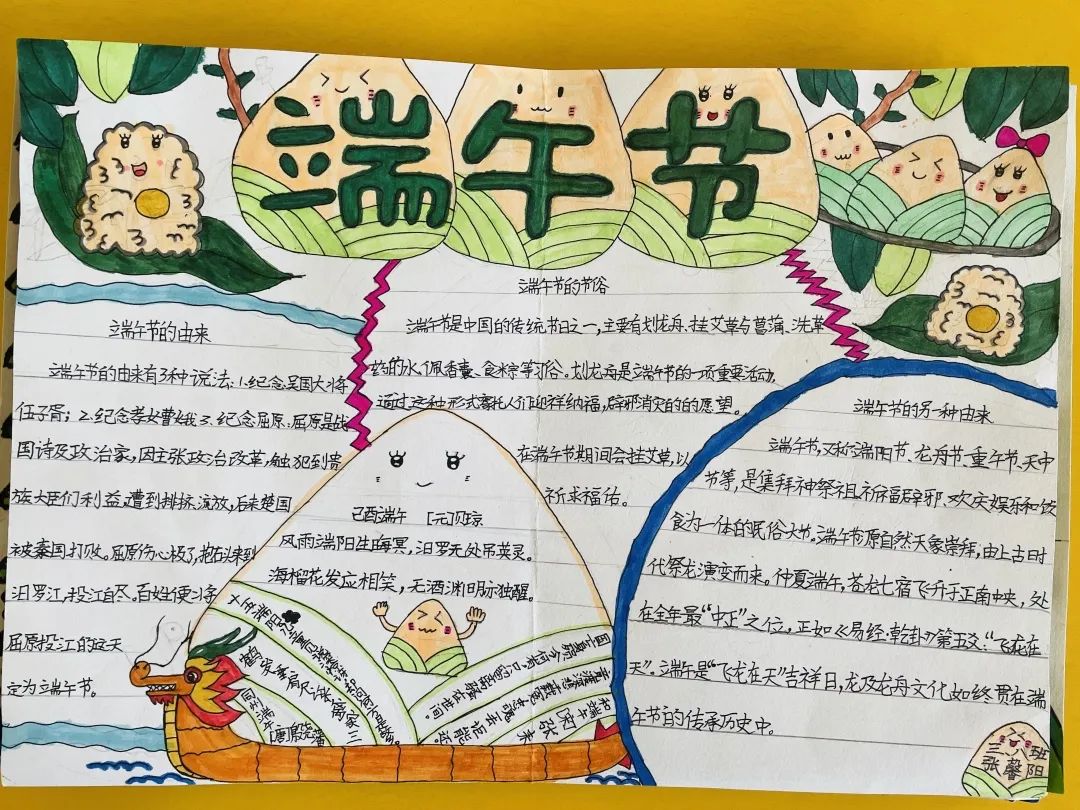 端午节
端午节的由来
端午节的由来有3种说法:1.纪念吴国大将
伍子胥;2.纪念孝女曹娥3.纪念屈原:屈原是战
国诗及政治家,因主张政治改革,触犯到贵
族大臣们利益,遭到排挤、流放,后来楚国
被秦国打败。屈原伤心极了,抱石头来到
汨罗江,投江自尽。百姓便将
屈原投江的这天
定为端午节。
端午节的节俗
端午节是中国的传统节日之一,主要有划龙舟、挂艾草与菖蒲、洗草
药的水、佩香囊、食粽等习俗。划龙舟是端午节的一项重要活动,
通过这种形式寄托人们迎祥纳福,辟邪消灾的的愿望。
在端午节期间会挂艾草,以
祈求福佑。
己酉端午 [元]贝琼
风雨端阳生晦冥,汨罗无处吊英灵。
海榴花发应相笑,无酒渊明亦独醒。
和端午[宋]张耒
端午节的另一种由来
端午节,又称端阳节、龙舟节、重午节、天中
节等,是集拜神祭祖、祈福辟邪、欢庆娱乐和饮
食为一体的民俗大节。端午节源自然天象崇拜,由上古时
代祭龙演变而来。仲夏端午,苍龙七宿飞升于正南中央,处
在全年最“中正”之位,正如《易经·乾卦》第五爻:“飞龙在
天”。端午是“飞龙在天”吉祥日,龙及龙舟文化如终贯在端
午节的传承历史中。
三.六班
张馨阳